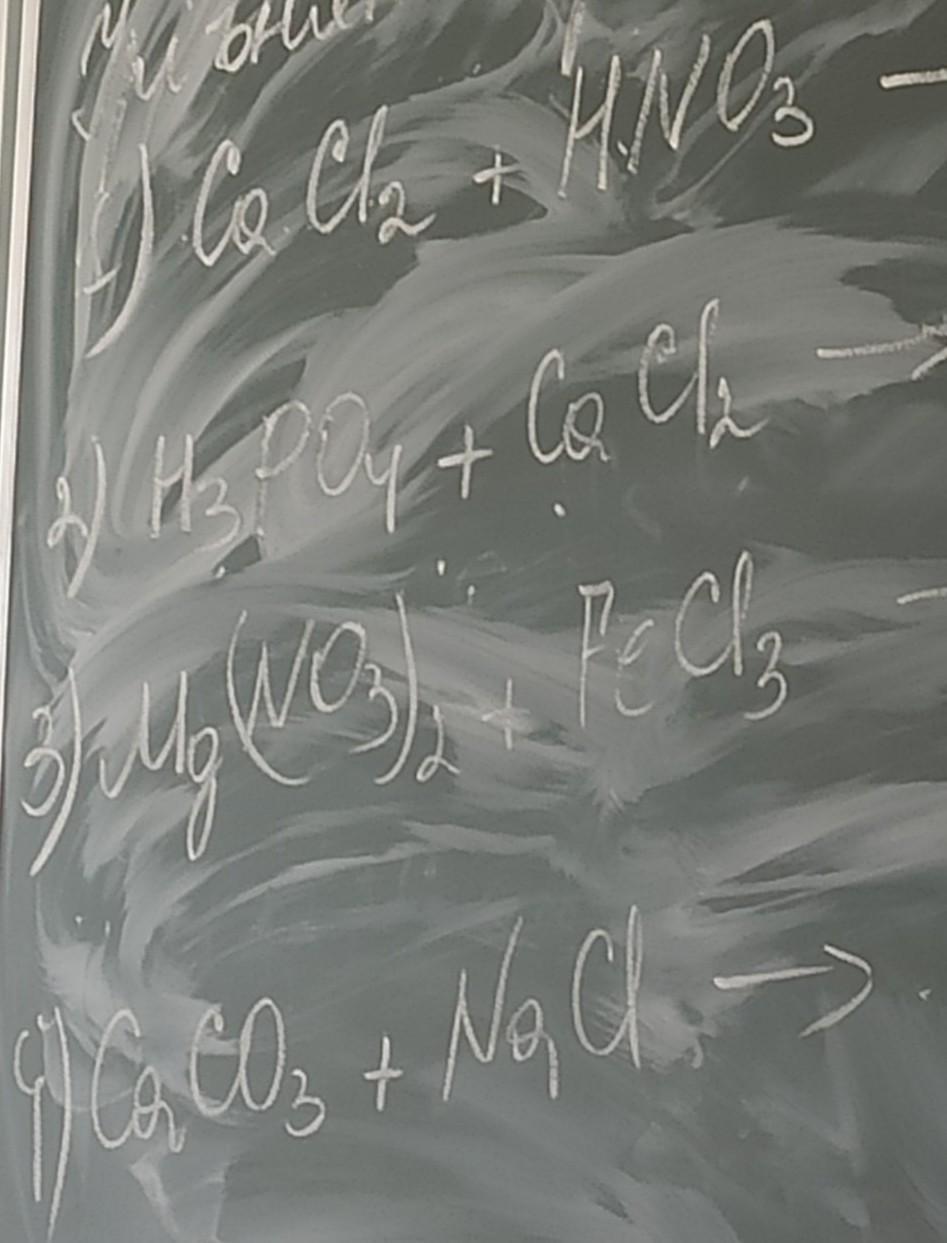 1) CaCl₂ + HNO₃ —
2) H₃PO₄ + CaCl₂ →
3) Mg(NO₃)₂ + FeCl₃ —
4) CaCO₃ + NaCl →